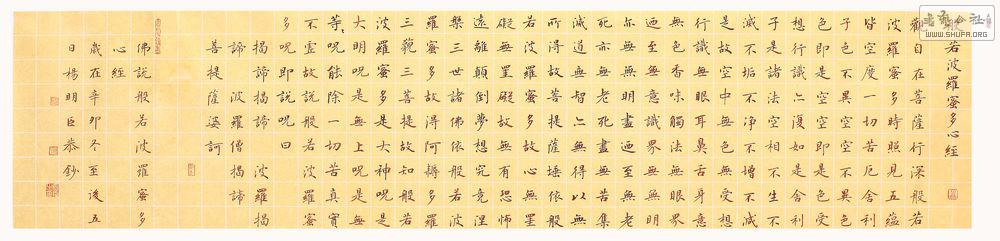 若波羅蜜多心經
觀自在菩薩行深般若
波羅蜜多時照見五蘊
皆空度一切苦厄舍利
子色不異空空不異色
色即是空空即是色受
想行識亦復如是舍利
子是諸法空相不生不
滅不垢不淨不增不減
是故空中無色無受想
行識無眼耳鼻舌身意
無色香味觸法無眼界
乃至無意識界無無明
亦無無明盡乃至無老
死亦無老死盡無苦集
滅道無智亦無得以無
所得故菩提薩埵依般
若波羅蜜多故心無罣
礙無罣礙故無有恐怖
遠離顛倒夢想究竟涅
槃三世諸佛依般若波
羅蜜多故得阿耨多羅
三藐三菩提故知般若
波羅蜜多是大神呪是
大明呪是無上呪是無
等等呪能除一切苦真實
不虛故說般若波羅蜜
多呪即說呪曰
揭諦揭諦 波羅揭
諦 波羅僧揭諦
菩提薩婆訶
佛說般若波羅蜜多
心經
歲在辛卯冬至後五
日楊明臣恭鈔
WWW.SHUFA.ORG